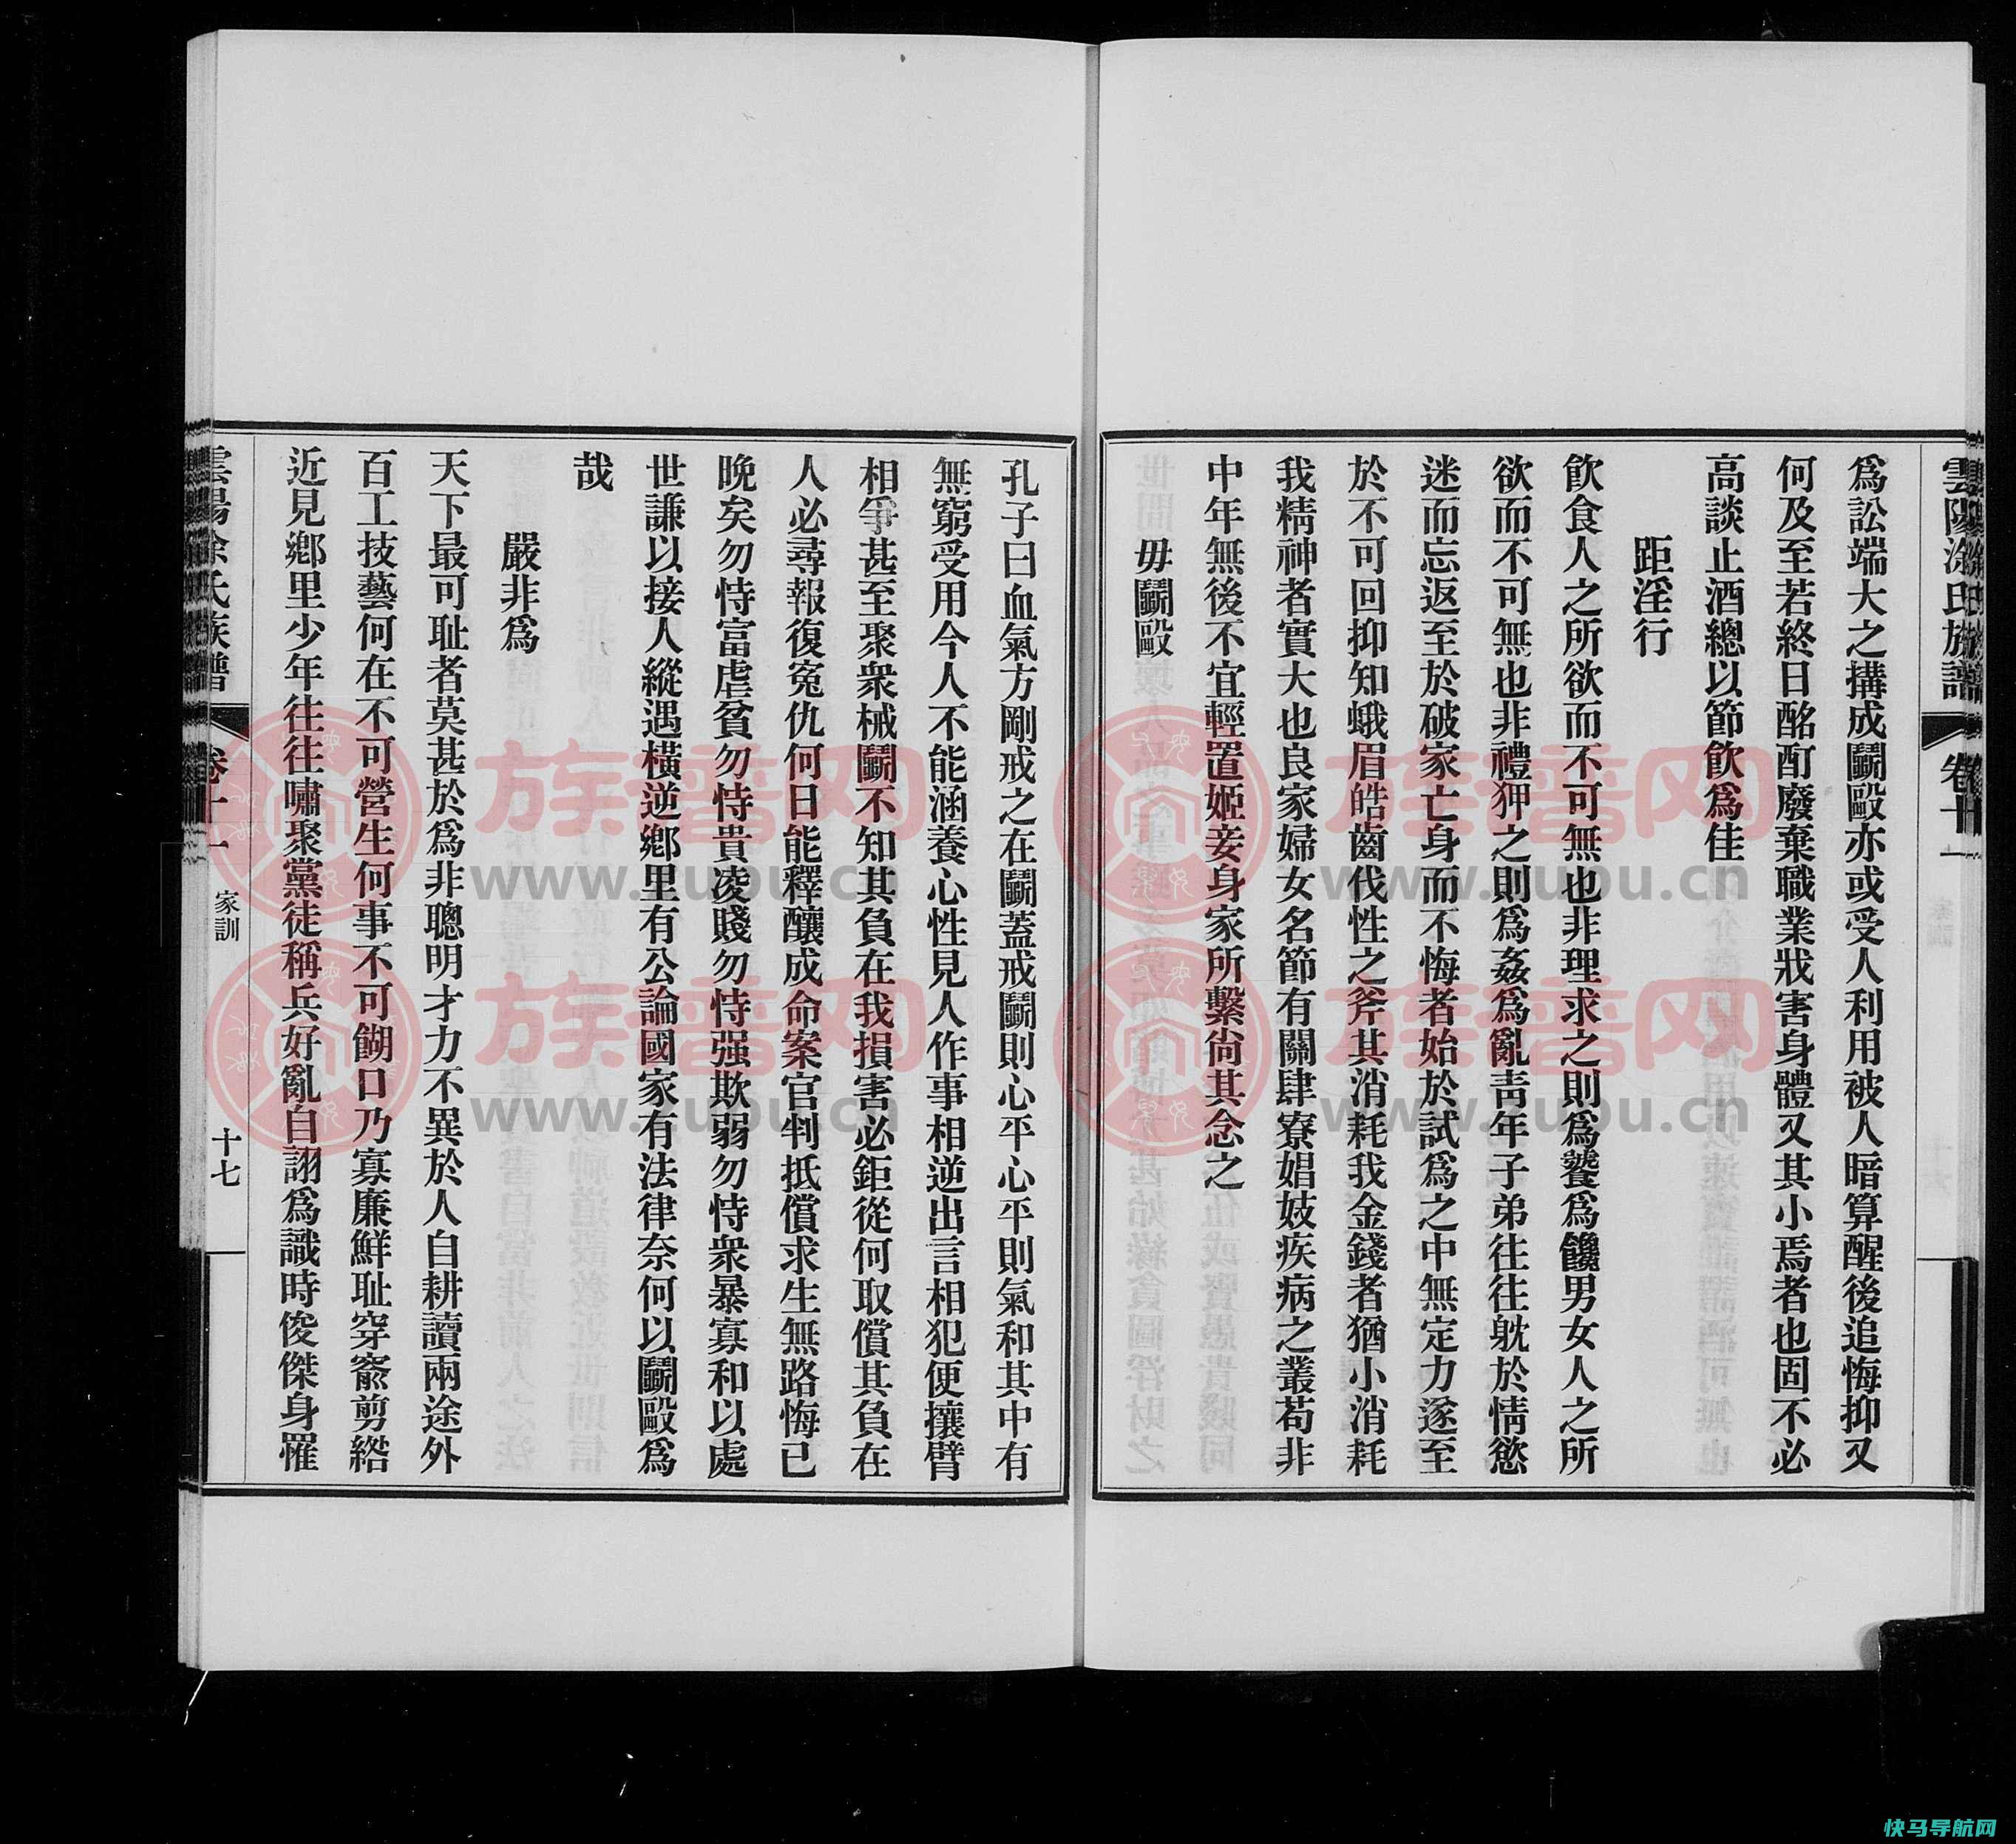 雲陽涂氏族譜 卷十一
爲訟端大之搆成鬭毆亦或受人利用被人暗算醒後追悔抑又
何及至若終日酩酊廢棄職業戕害身體又其小焉者也固不必
高談止酒總以節飲爲佳
距淫行
飲食人之所欲而不可無也非理求之則爲饕爲饞男女人之所
欲而不可無也非禮狎之則爲姦爲亂靑年子弟往往躭於情慾
迷而忘返至於破家亡身而不悔者始於試爲之中無定力遂至
於不可回抑知蛾眉皓齒伐性之斧其消耗我金錢者猶小消耗
我精神者實大也良家婦女名節有關肆寮娼妓疾病之叢苟非
中年無後不宜輕置姬妾身家所繫尙其念之
毋鬭毆
孔子曰血氣方剛戒之在鬭蓋戒鬭則心平心平則氣和其中有
無窮受用今人不能涵養心性見人作事相逆出言相犯便攘臂
相爭甚至聚衆械鬭不知其負在我損害必鉅從何取償其負在
人必尋報復寃仇何日能釋釀成命案官判抵償求生無路悔已
晚矣勿恃富虐貧勿恃貴凌賤勿恃强欺弱勿恃衆暴寡和以處
世謙以接人縱遇橫逆鄕里有公論國家有法律奈何以鬭毆爲
哉
嚴非爲
天下最可耻者莫甚於爲非聰明才力不異於人自耕讀兩途外
百工技藝何在不可營生何事不可餬口乃寡廉鮮耻穿窬剪綹
近見鄕里少年往往嘯聚黨徒稱兵好亂自詡爲識時俊傑身罹
雲陽涂氏族譜 卷十一 家訓 十七
族譜网
www.zupu.cn
族譜网
www.zupu.cn
族譜网
www.zupu.cn
族譜网
www.zupu.cn
快马导航网